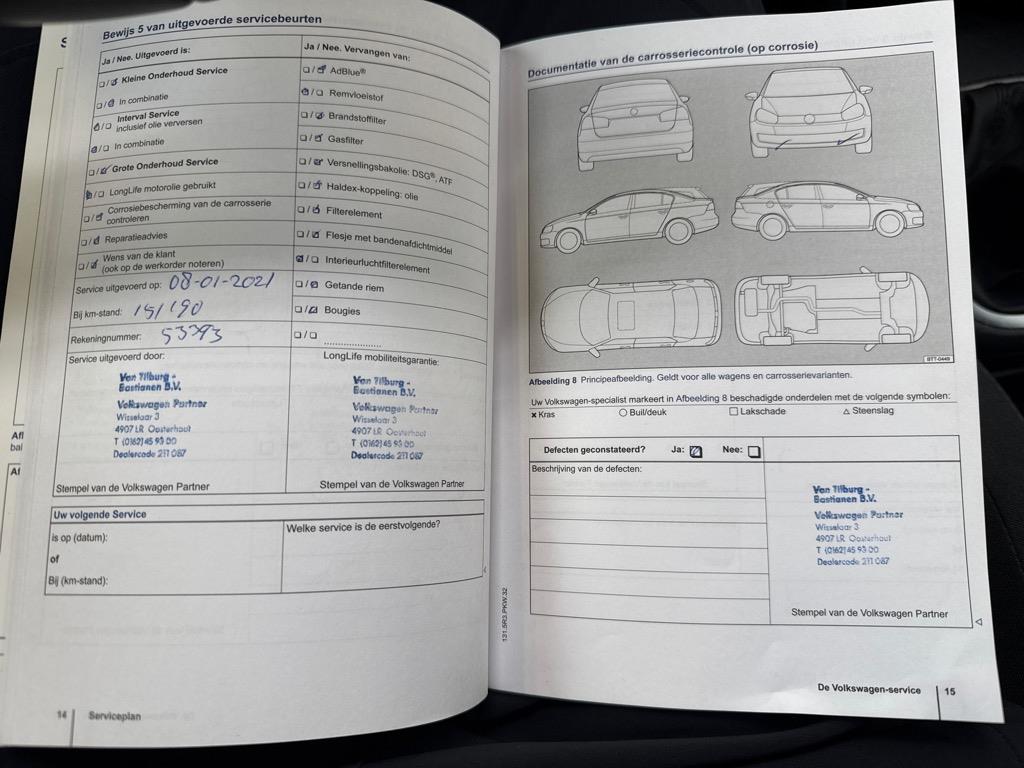 Bewijs 5 van uitgevoerde servicebeurten
Ja / Nee. Uitgevoerd is:
Kleine Onderhoud Service
In combinatie
Interval Service
inclusief olie verversen
In combinatie
Grote Onderhoud Service
LongLife motorolie gebruikt
Corrosiebescherming van de carrosserie
controleren
Reparatieadvies
Wens van de klant
(ook op de werkorder noteren)
Service uitgevoerd op: 08-01-2021
Bij km-stand: 151190
Rekeningnummer: 53393
Service uitgevoerd door:
Van Tilburg -
Bastianen B.V.
Volkswagen Partner
Wisselaar 3
4907 LR Oosterhout
T (0162) 45 93 00
Dealercode 211 087
Stempel van de Volkswagen Partner
Ja / Nee. Vervangen van:
AdBlue®
Remvloeistof
Brandstoffilter
Gasfilter
Versnellingsbakolie: DSG®, ATF
Haldex-koppeling: olie
Filterelement
Flesje met bandenafdichtmiddel
Interieurluchtfilterelement
Getande riem
Bougies
LongLife mobiliteitsgarantie:
Van Tilburg -
Bastianen B.V.
Volkswagen Partner
Wisselaar 3
4907 LR Oosterhout
T (0162) 45 93 00
Dealercode 211 087
Stempel van de Volkswagen Partner
Uw volgende Service
is op (datum):
of
Bij (km-stand):
Welke service is de eerstvolgende?
14 Serviceplan
131.5R3.PKW.32
Documentatie van de carrosseriecontrole (op corrosie)
BTT-0449
Afbeelding 8 Principeafbeelding. Geldt voor alle wagens en carrosserievarianten.
Uw Volkswagen-specialist markeert in Afbeelding 8 beschadigde onderdelen met de volgende symbolen:
Kras Buil/deuk Lakschade Steenslag
Defecten geconstateerd? Ja: Nee:
Beschrijving van de defecten:
Van Tilburg -
Bastianen B.V.
Volkswagen Partner
Wisselaar 3
4907 LR Oosterhout
T (0162) 45 93 00
Dealercode 211 087
Stempel van de Volkswagen Partner
De Volkswagen-service 15